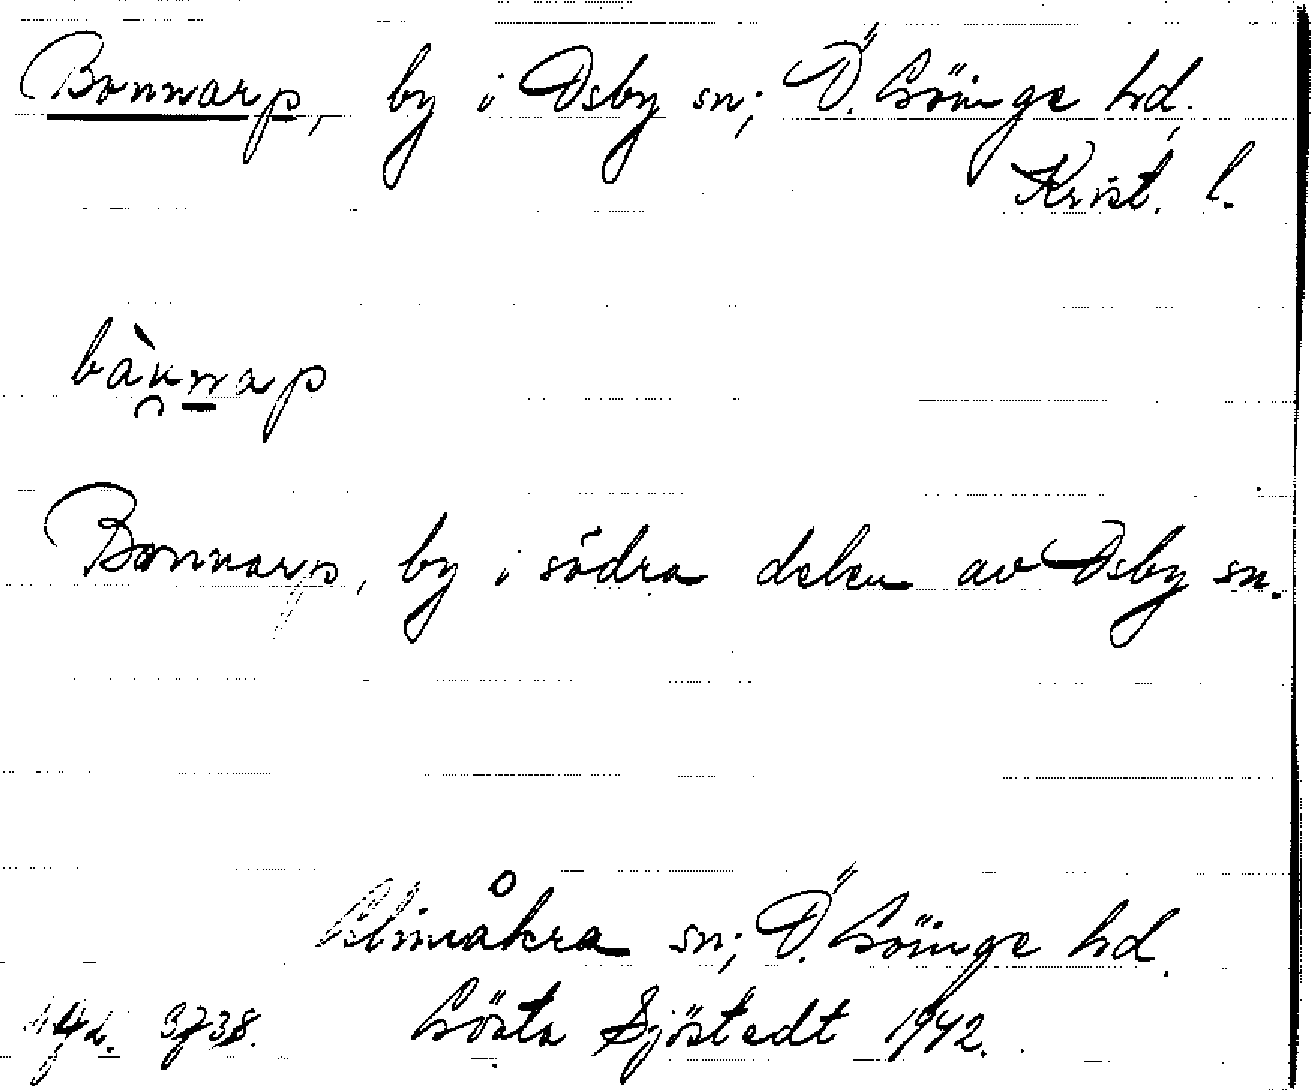 Bonnarp, by i Osby sn; Ö. Göinge hd.
Krist. l.
bànnap
Bonnarp, by i södra delen av Osby sn.
Glimåkra sn; Ö. Göinge hd.
3738. Gösta Sjöstedt 1942.